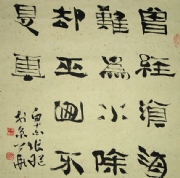 曾經滄海
難為水除
却巫山不
是雲